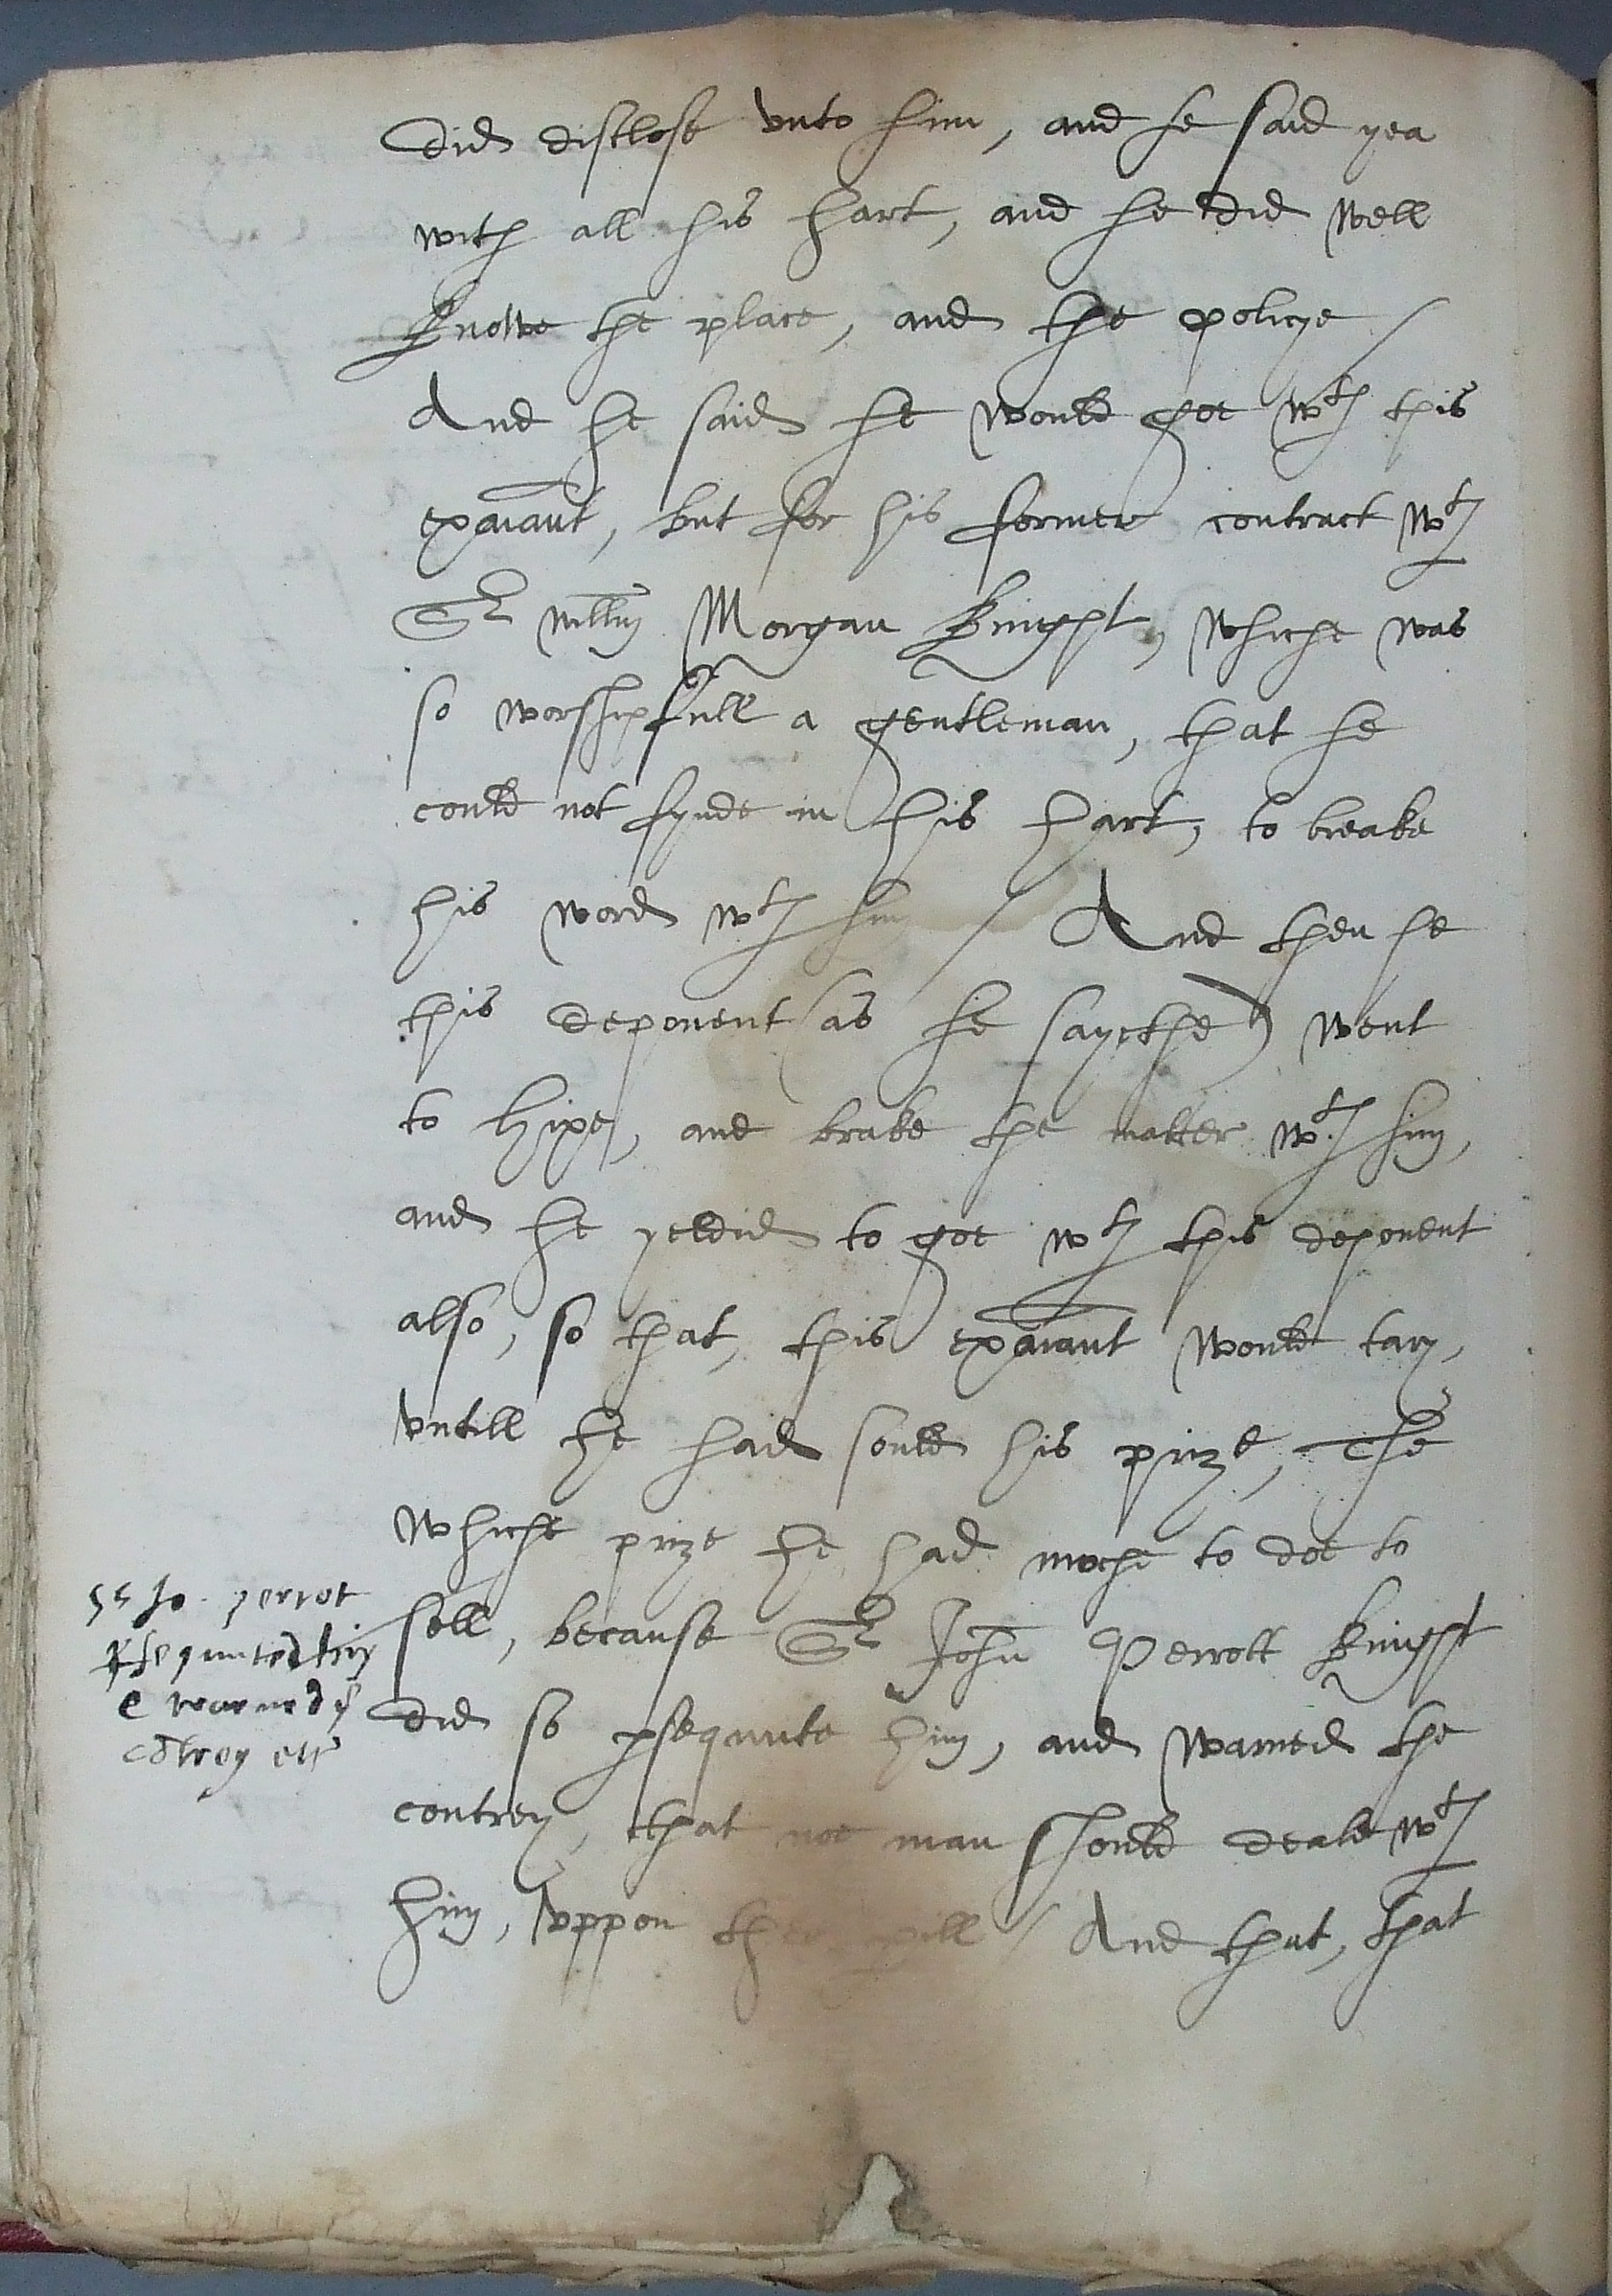 did disclose vnto him, and he said yea
with all his hart, and he did well
knowe the place, and the policye /
And he said he would goe wth this
exaiant, but for his former contract wth
Sr willm Morgan knight, whiche was
so worshipfull a gentleman, that he
could not fynde in his hart, to breake
his word wth him / And then he
this deponent (as he saythe) went
to Hipe, and brake the matter wth him,
and he yeldid to goe wth this deponent
also, so that, this exaiant would tary,
vntill he had sould his prize, The
whiche prize he had moche to doe to
Sr Jo. perrot
psequuted him
& warned ye
cotrey etc
sell, because Sr John Perrott knight
did so psequute him, and warned the
contrey, that noe man should deale wth
him, vppon ther pill / And that, that